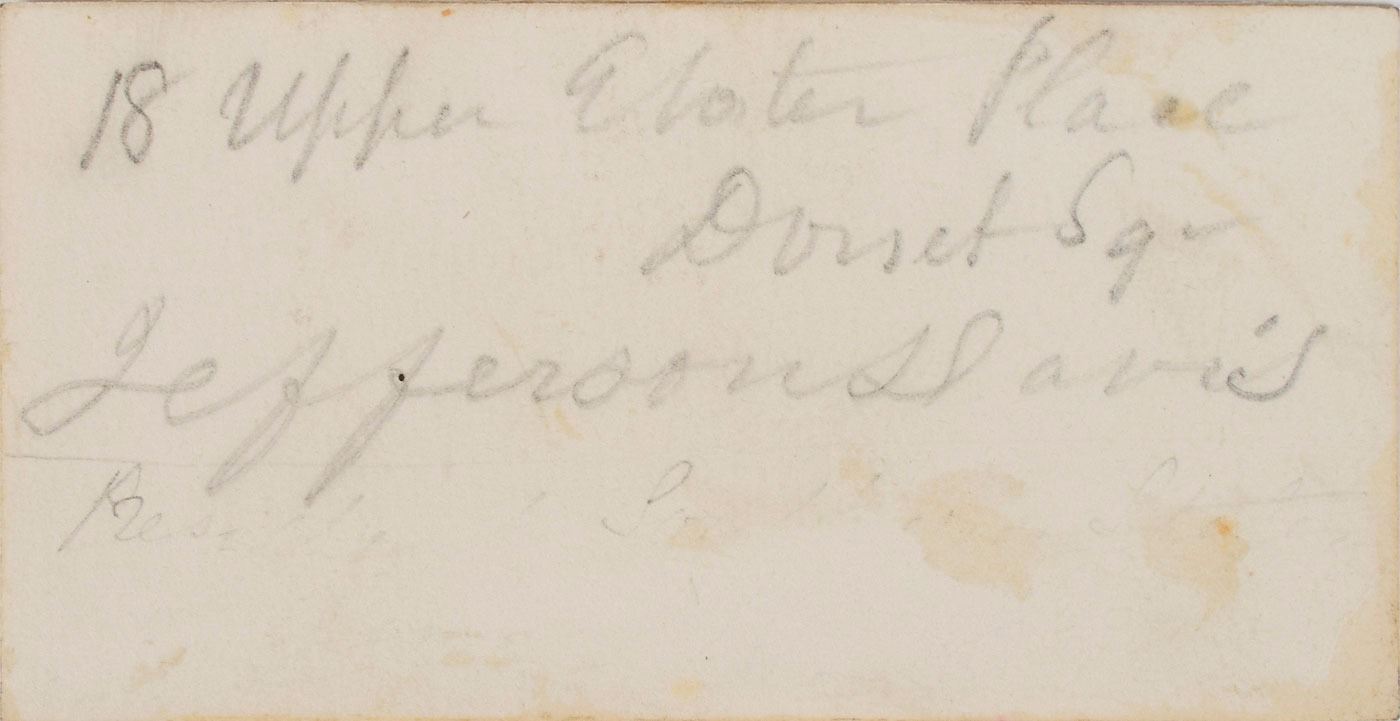 18 Upper Gloster Place
Dorset Sqr
Jefferson Davis
President Southern States